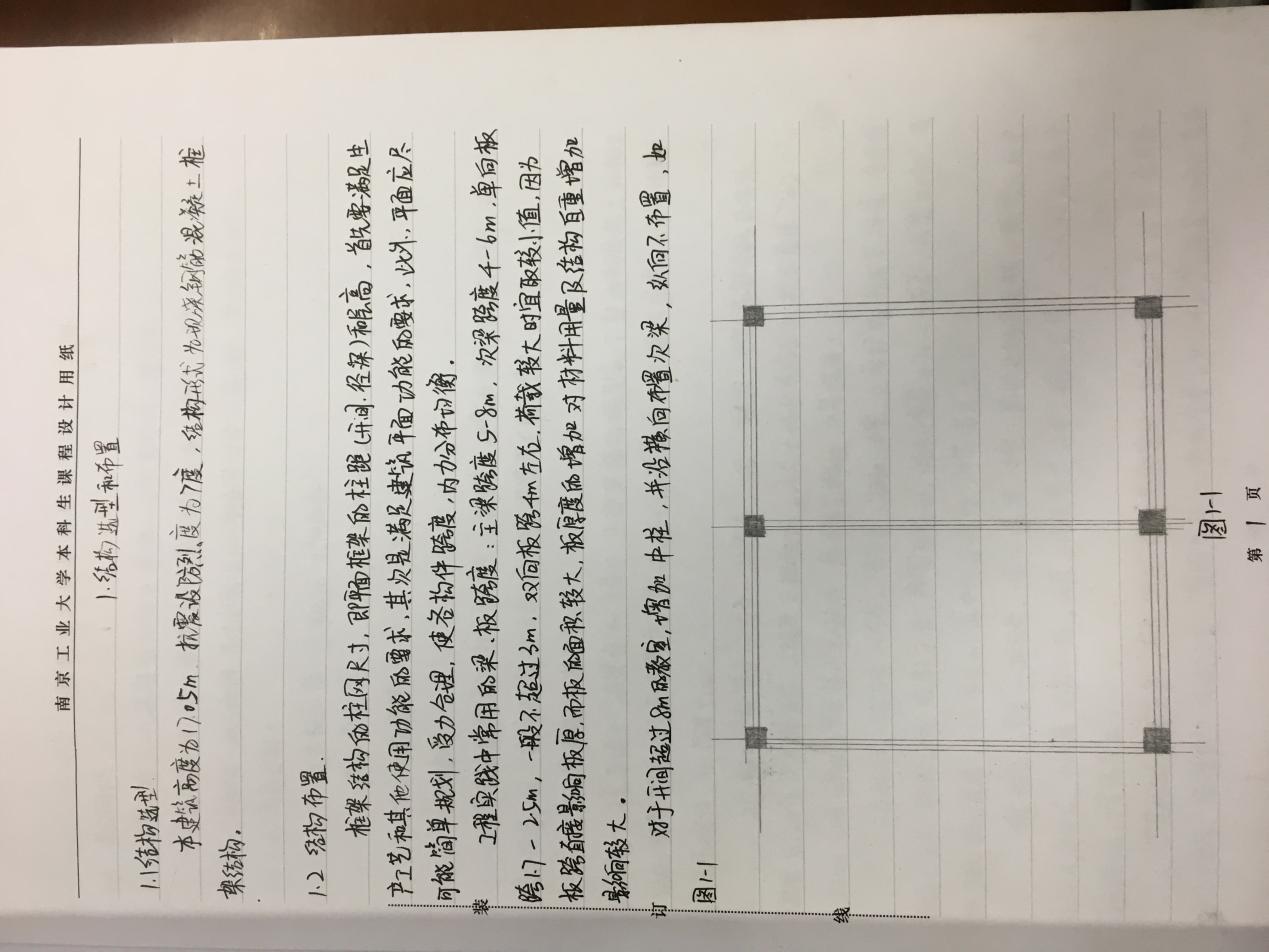 南京工业大学本科生课程设计用纸
1.结构选型和布置
1.1结构选型
本建筑高度为17.05m,抗震设防烈度为7度,结构形式为现浇钢筋混凝土框
架结构。
1.2 结构布置.
框架结构的柱网尺寸,即平面框架的柱距(开间.径深)和层高,首先要满足生
产工艺和其他使用功能的要求,其次是满足建筑平面功能的要求,此外,平面应尽
可能简单规划,受力合理,使各构件跨度,内力分布均衡.
工程实践中常用的梁、板跨度:主梁跨度5-8m,次梁跨度4-6m,单向板
跨1.7-2.5m,一般不超过3m,双向板跨4m左右,荷载较大时宜取较小值,因为
板跨直接影响板厚,而板的面积较大,板厚度的增加对材料用量及结构自重增加
影响较大。
对于开间超过8m的教室,增加中柱,并沿横向布置次梁,纵向不布置,如
图1-1
图1-1
装
订
线
第 1 页